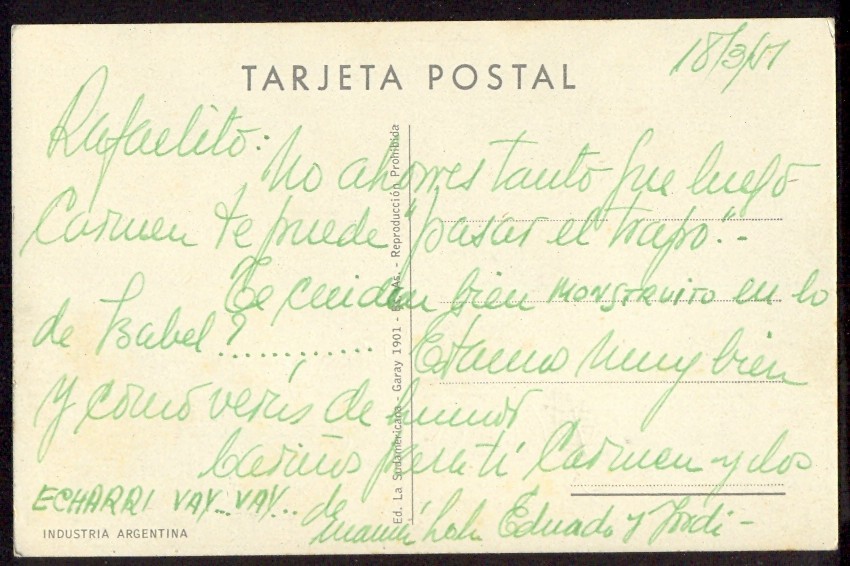 TARJETA POSTAL
18/3/51
Rafaelito:
No ahorres tanto que luego
Carmen te puede "pasar el trapo".-
Te cuidan bien MONSTRUITO en lo
de Isabel?............
Estamos muy bien
y como verás de humor
Cariños para ti Carmen y los
ECHARRI VAY...VAY... de
mamá Lola Eduardo y Jordi-
INDUSTRIA ARGENTINA
Ed. La Sudamericana - Garay 1901 - Bs. As. - Reproducción Prohibida